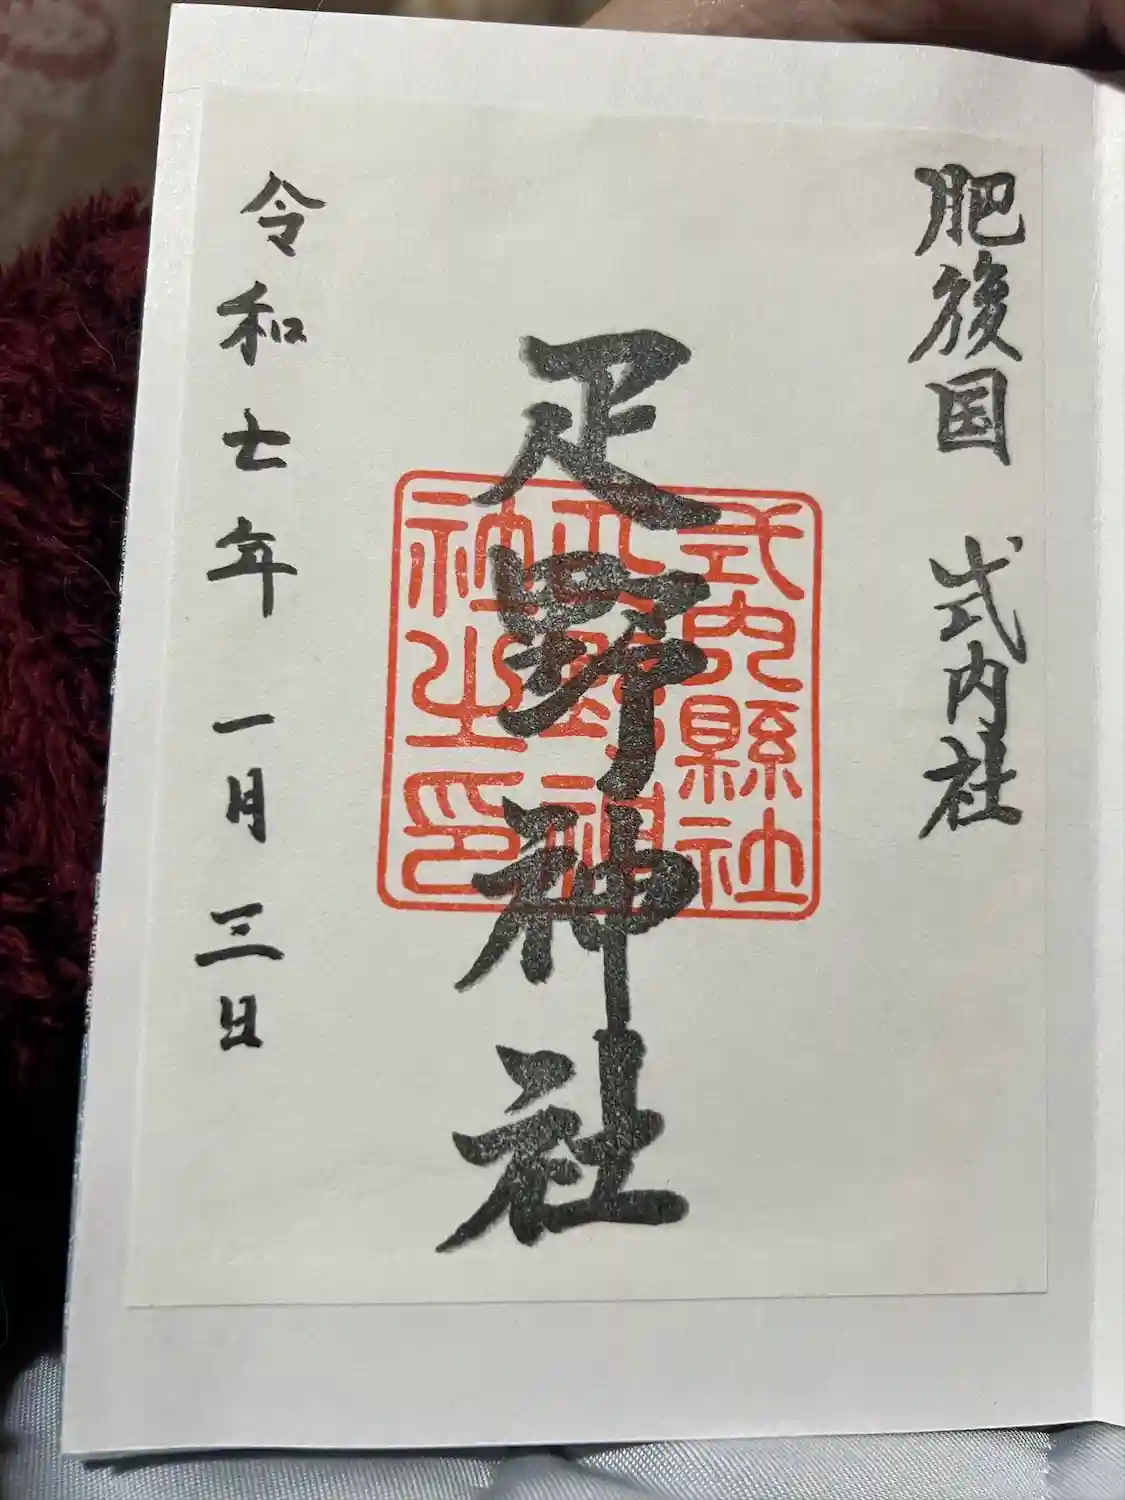 肥後国 式内社
疋野神社
式内縣社
疋野神
社之印
令和七年 一月 三日